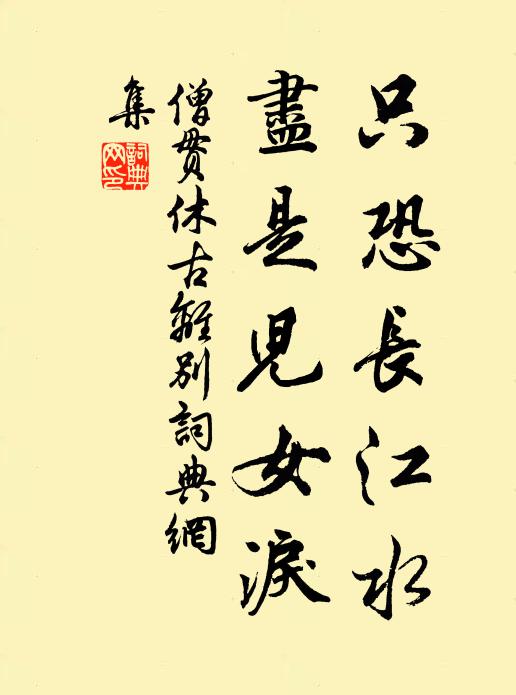 只恐長江水
盡是兒女淚
僧貫休古離別詞典網
集
詞典網印